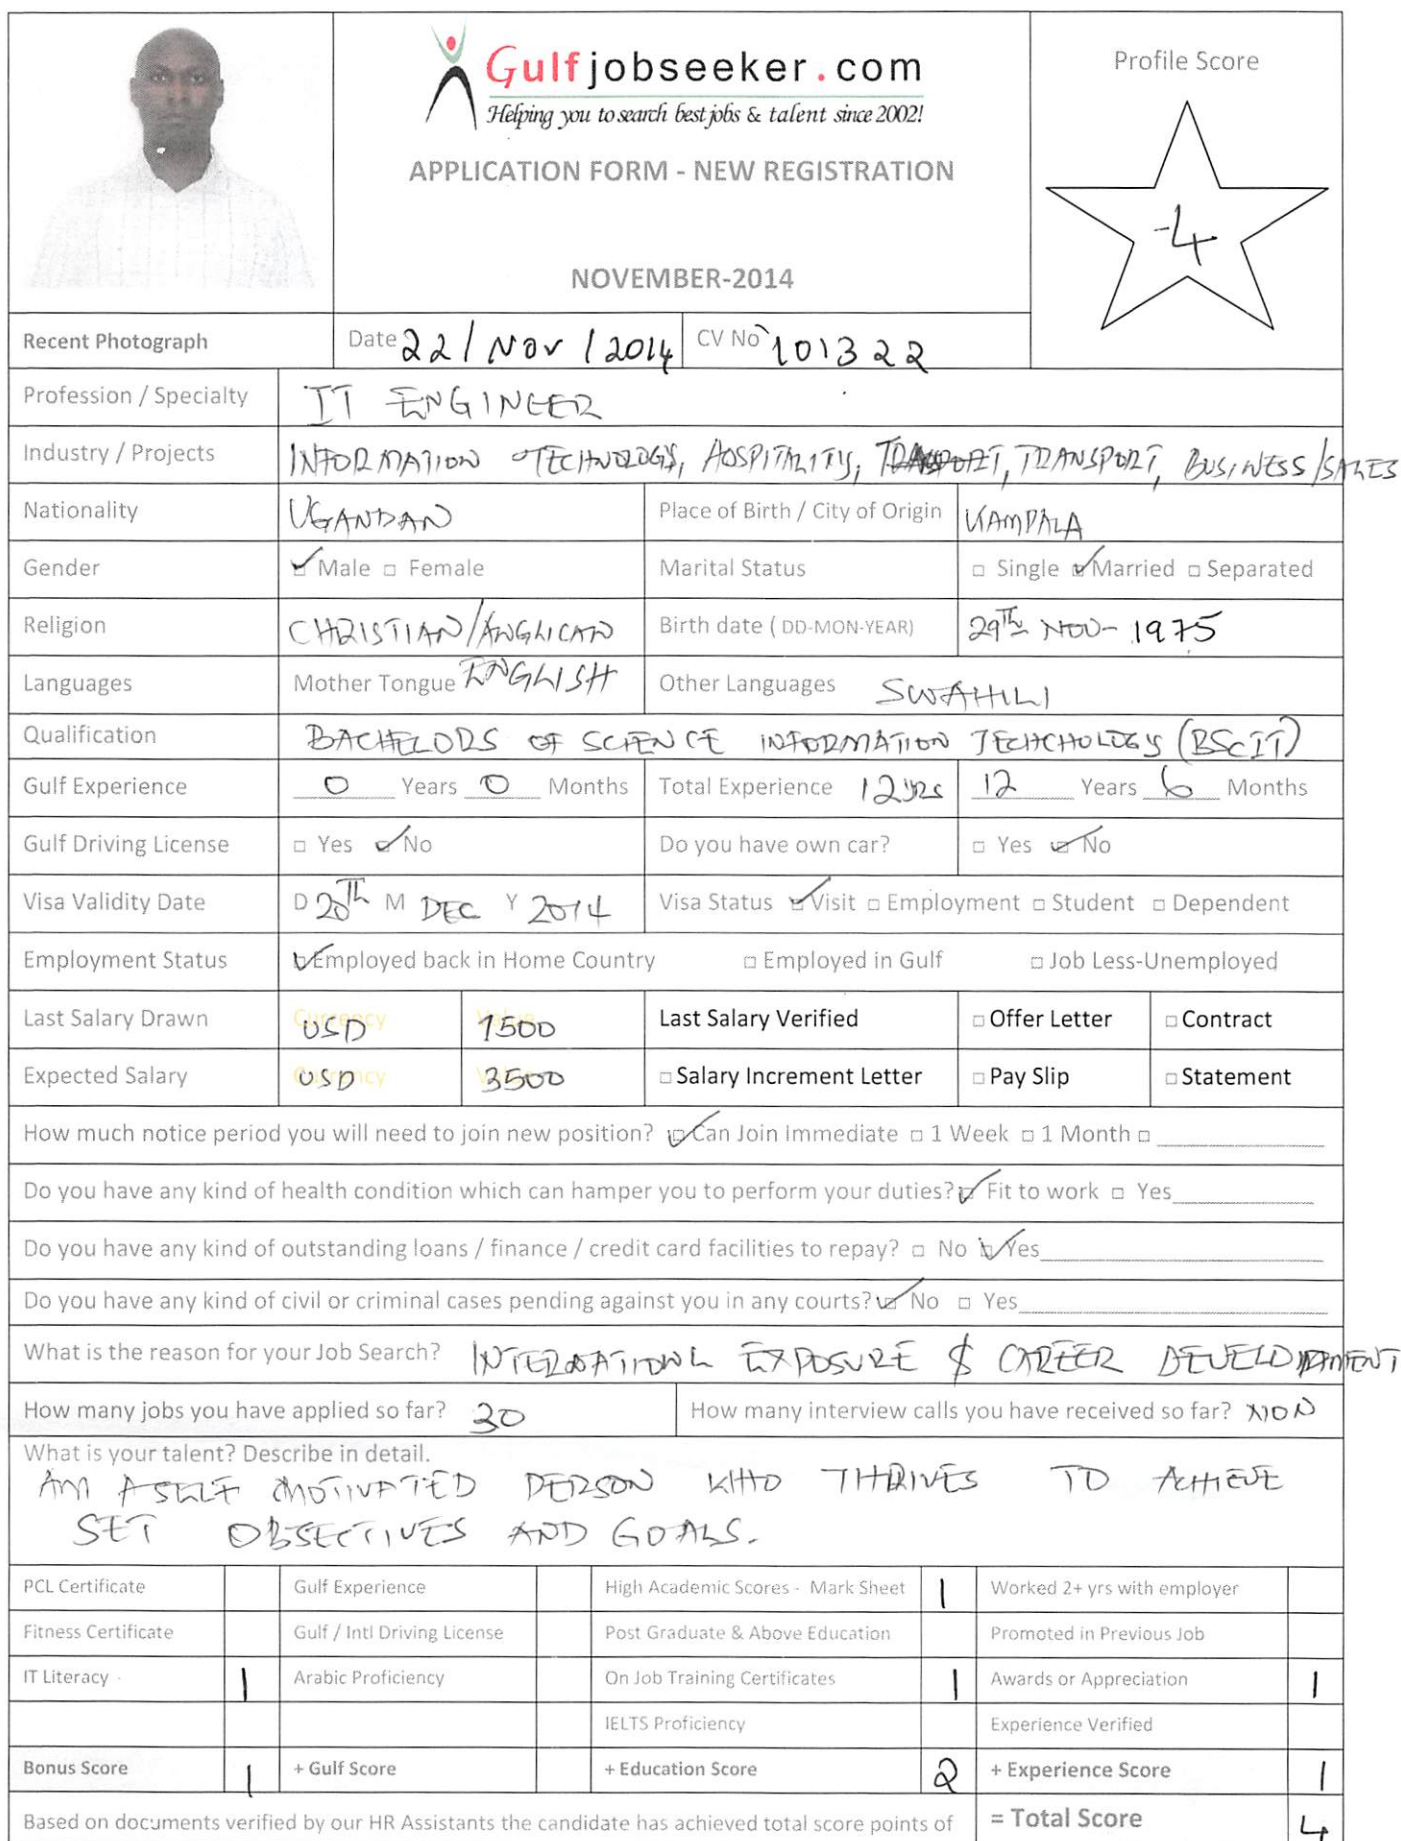 Gulfjobseeker.com
Helping you to search best jobs & talent since 2002!
APPLICATION FORM - NEW REGISTRATION
NOVEMBER-2014
Profile Score
-4
Recent Photograph
Date 22/Nov/2014 CV No 101322
Profession / Specialty IT ENGINEER
Industry / Projects INFORMATION TECHNOLOGY, HOSPITALITY, TRANSPORT, BUSINESS/SALES
Nationality UGANDAN Place of Birth / City of Origin KAMPALA
Gender Male Female Marital Status Single Married Separated
Religion CHRISTIAN/ANGLICAN Birth date ( DD-MON-YEAR) 29Th NOV- 1975
Languages Mother Tongue ENGLISH Other Languages SWAHILI
Qualification BACHELORS OF SCIENCE INFORMATION TECHCHOLOGY (BSCIT)
Gulf Experience 0 Years 0 Months Total Experience 12yrs 12 Years 6 Months
Gulf Driving License Yes No Do you have own car? Yes No
Visa Validity Date D 20Th M DEC Y 2014 Visa Status Visit Employment Student Dependent
Employment Status Employed back in Home Country Employed in Gulf Job Less-Unemployed
Last Salary Drawn Currency USD Value 1500 Last Salary Verified Offer Letter Contract
Expected Salary Currency USD Value 3500 Salary Increment Letter Pay Slip Statement
How much notice period you will need to join new position? Can Join Immediate 1 Week 1 Month
Do you have any kind of health condition which can hamper you to perform your duties? Fit to work Yes
Do you have any kind of outstanding loans / finance / credit card facilities to repay? No Yes
Do you have any kind of civil or criminal cases pending against you in any courts? No Yes
What is the reason for your Job Search? INTERNATIONL EXPOSURE & CAREER DEVELOPMENT
How many jobs you have applied so far? 30 How many interview calls you have received so far? NON
What is your talent? Describe in detail.
AM A SELF MOTIVATED PERSON WHO THRIVES TO ACHIEVE
SET OBJECTIVES AND GOALS.
PCL Certificate Gulf Experience High Academic Scores - Mark Sheet 1 Worked 2+ yrs with employer
Fitness Certificate Gulf / Intl Driving License Post Graduate & Above Education Promoted in Previous Job
IT Literacy 1 Arabic Proficiency On Job Training Certificates 1 Awards or Appreciation 1
IELTS Proficiency Experience Verified
Bonus Score 1 + Gulf Score + Education Score 2 + Experience Score 1
Based on documents verified by our HR Assistants the candidate has achieved total score points of = Total Score 4